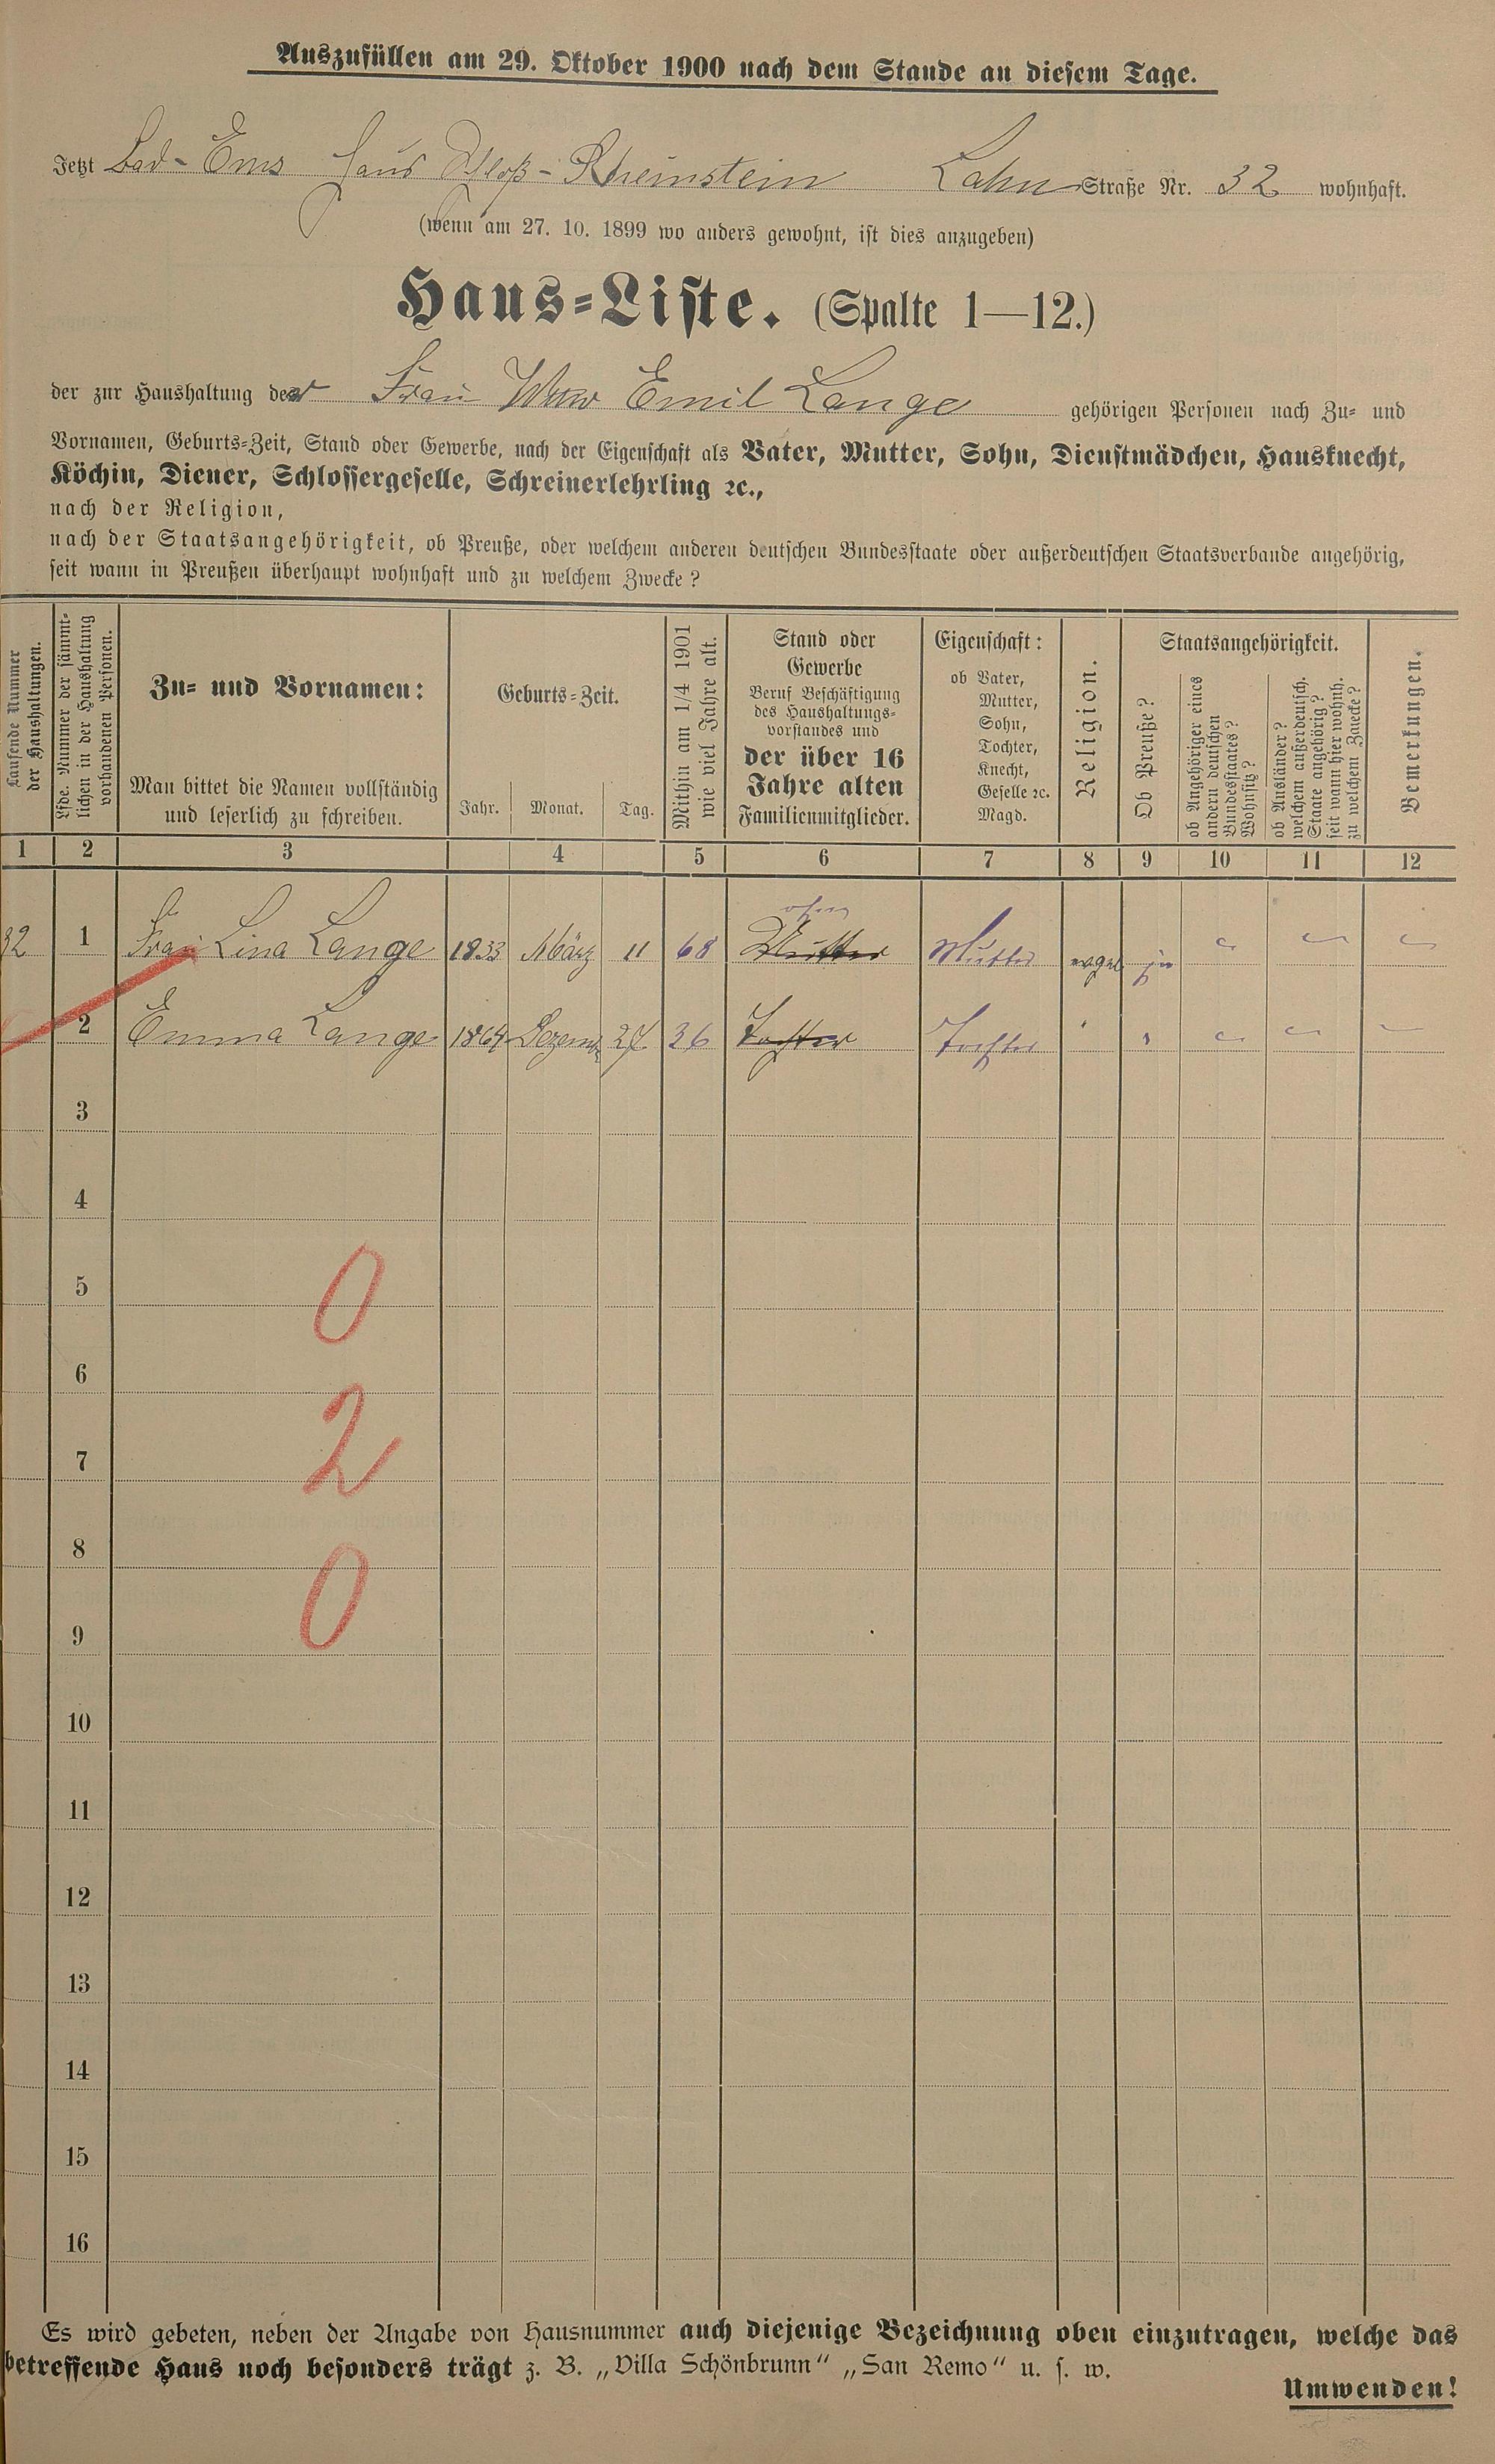 Auszufüllen am 29. Oktober 1900 nach dem Stande an diesem Tage.
Jetzt Bad-Ems Haus Schloß-Rheinstein Lahn Straße Nr. 32 wohnhaft.
(wenn am 27. 10. 1899 wo anders gewohnt, ist dies anzugeben)
Haus-Liste. (Spalte 1—12.)
der zur Haushaltung der Frau Wtw Emil Lange gehörigen Personen nach Zu- und
Vornamen, Geburts-Zeit, Stand oder Gewerbe, nach der Eigenschaft als Vater, Mutter, Sohn, Dienstmädchen, Hausknecht,
Köchin, Diener, Schlossergeselle, Schreinerlehrling ꝛc.,
nach der Religion,
nach der Staatsangehörigkeit, ob Preuße, oder welchem anderen deutschen Bundesstaate oder außerdeutschen Staatsverbande angehörig,
seit wann in Preußen überhaupt wohnhaft und zu welchem Zwecke?
Laufende Nummer
der Haushaltungen.
Lfde. Nummer der sämmt-
lichen in der Haushaltung
vorhandenen Personen.
Zu- und Vornamen:
Man bittet die Namen vollständig
und leserlich zu schreiben.
Geburts-Zeit.
Jahr. Monat. Tag.
Mithin am 1/4 1901
wie viel Jahre alt.
Stand oder
Gewerbe
Beruf Beschäftigung
des Haushaltungs-
vorstandes und
der über 16
Jahre alten
Familienmitglieder.
Eigenschaft:
ob Vater,
Mutter,
Sohn,
Tochter,
Knecht,
Geselle ꝛc.
Magd.
Religion.
Staatsangehörigkeit.
Ob Preuße?
ob Angehöriger eines
andern deutschen
Bundesstaates?
Wohnsitz?
ob Ausländer?
welchem außerdeutsch.
Staate angehörig?
seit wann hier wohnh.
zu welchem Zwecke?
Bemerkungen.
1 2 3 4 5 6 7 8 9 10 11 12
ohne
32 1 Frau Lina Lange 1833 März 11 68 Mutter Mutter evgel ja
2 Emma Lange 1864 Dezemb 27 36 Tochter Tochter " "
3
4
5
0
6
2
7
8
0
9
10
11
12
13
14
15
16
Es wird gebeten, neben der Angabe von Hausnummer auch diejenige Bezeichnung oben einzutragen, welche das
betreffende Haus noch besonders trägt z. B. „Villa Schönbrunn“ „San Remo“ u. s. w.
Umwenden!